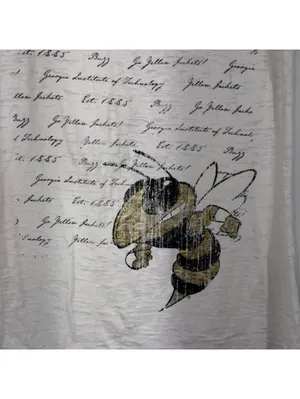 Est. 1885 Buzz Go Yellow Jackets!
Georgia Institute of Technology Buzz Georgia
Yellow Jackets Est. 1885 Go Yellow Jacke
Go Yellow Jackets! Georgia Institute of Technol
Technology Yellow Jackets Est. 1885 Buzz
Est. 1885 Buzz
Georgia Institute of Technology
Jackets Est. 1885
Go Yellow Jackets!
Technology Yellow Jac